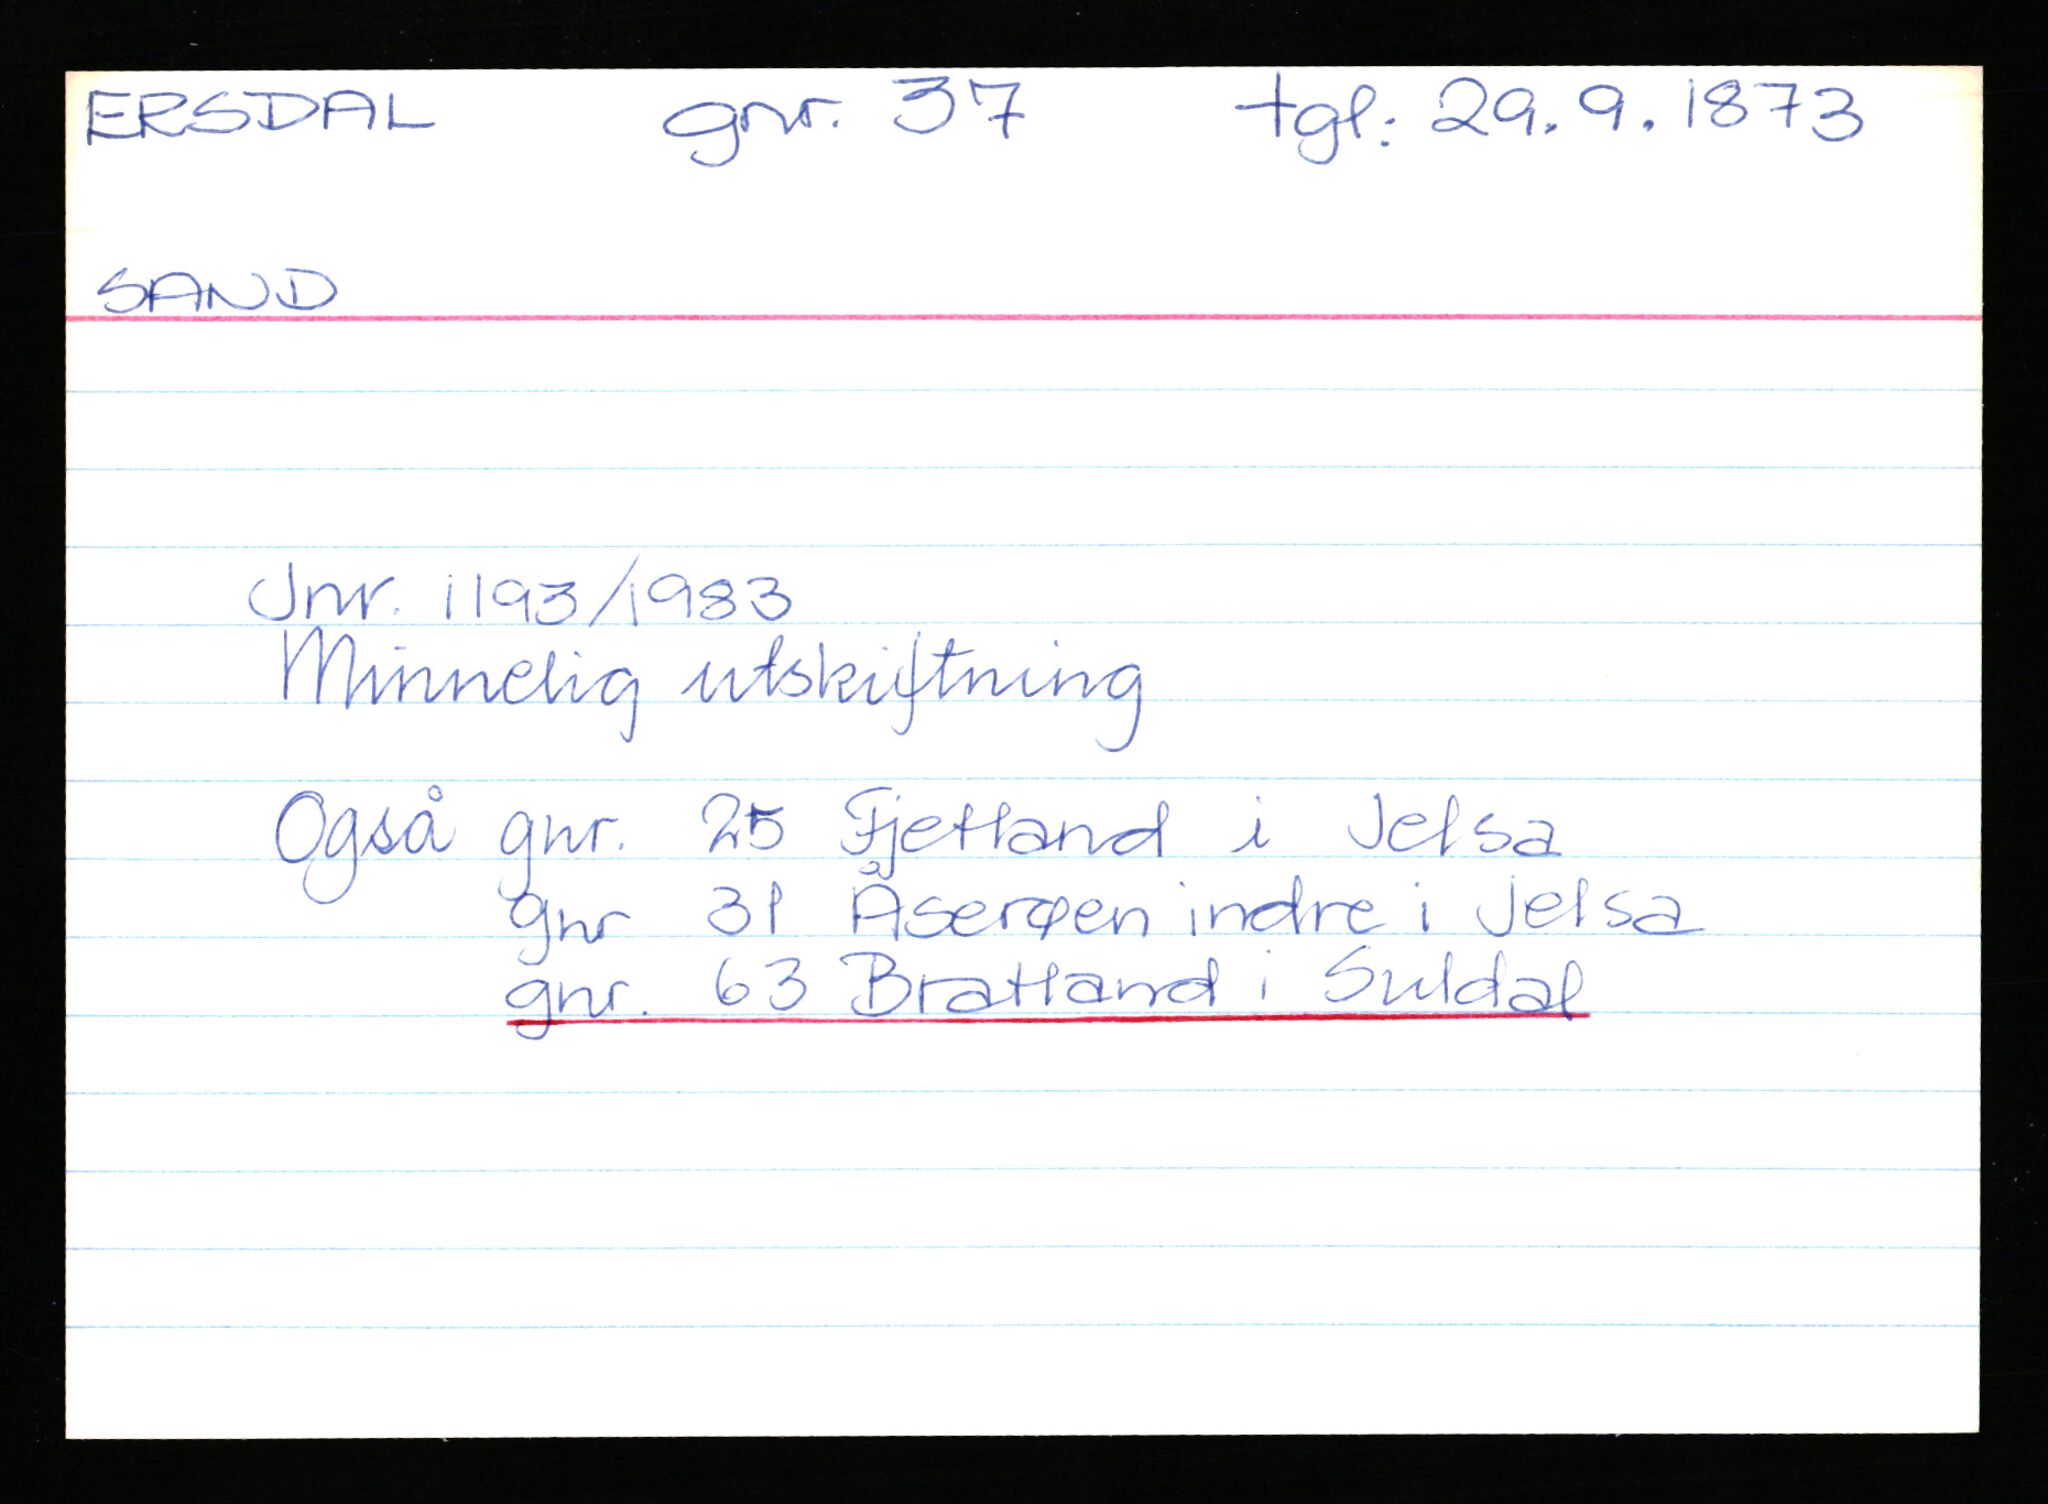 ERSDAL gnr. 37 tgl: 29.9.1873
SAND
Jnr. 1193/1983
Minnelig utskiftning
Også gnr. 25 Fjetland i Jelsa
gnr 31 Åserøen indre i Jelsa
gnr. 63 Bratland i Suldal